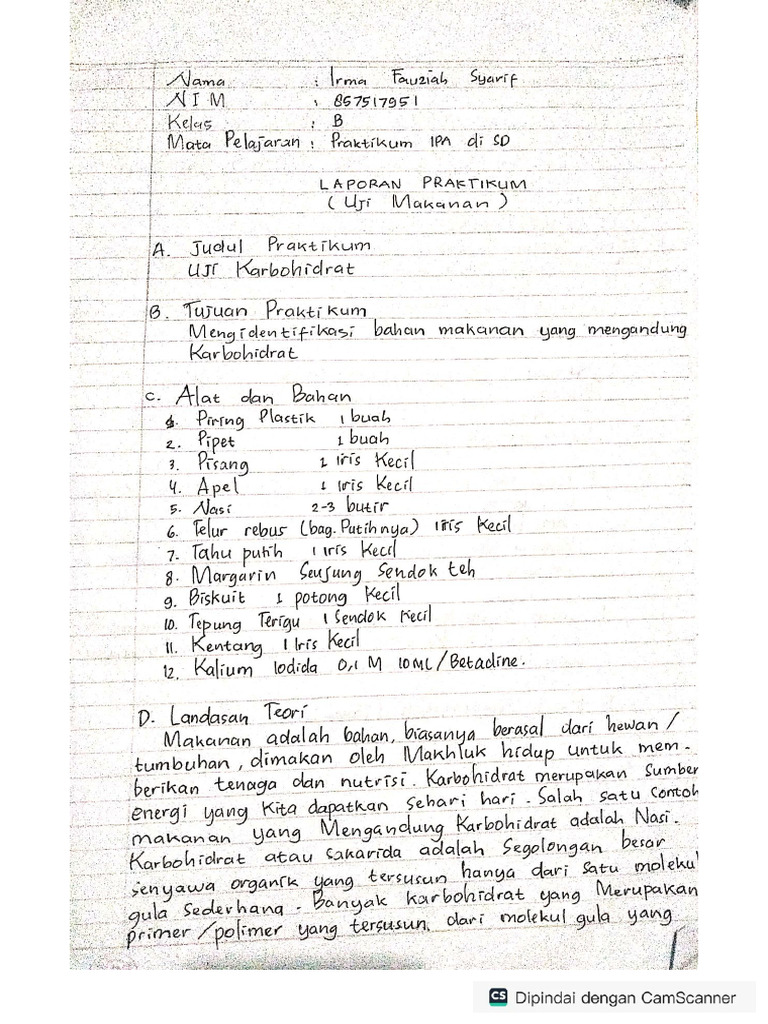 Nama : Irma Fauziah Syarif
NIM : 857517951
Kelas : B
Mata Pelajaran : Praktikum IPA di SD
LAPORAN PRAKTIKUM
(Uji Makanan)
A. Judul Praktikum
Uji Karbohidrat
B. Tujuan Praktikum
Mengidentifikasi bahan makanan yang mengandung
Karbohidrat
C. Alat dan Bahan
1. Piring Plastik 1 buah
2. Pipet 1 buah
3. Pisang 1 iris Kecil
4. Apel 1 iris Kecil
5. Nasi 2-3 butir
6. Telur rebus (bag. Putihnya) 1 iris Kecil
7. Tahu putih 1 iris Kecil
8. Margarin Seujung Sendok teh
9. Biskuit 1 potong Kecil
10. Tepung Terigu 1 Sendok Kecil
11. Kentang 1 Iris Kecil
12. Kalium Iodida 0,1 M 10 ML/Betadine.
D. Landasan Teori
Makanan adalah bahan, biasanya berasal dari hewan /
tumbuhan, dimakan oleh Makhluk hidup untuk mem-
berikan tenaga dan nutrisi. Karbohidrat merupakan Sumber
energi yang Kita dapatkan Sehari hari. Salah satu Contoh
makanan yang Mengandung Karbohidrat adalah Nasi.
Karbohidrat atau sakarida adalah Segolongan besar
senyawa organik yang tersusun hanya dari Satu molekul
gula Sederhana. Banyak karbohidrat yang Merupakan
primer/polimer yang tersusun, dari molekul gula yang
1
CS Dipindai dengan CamScanner